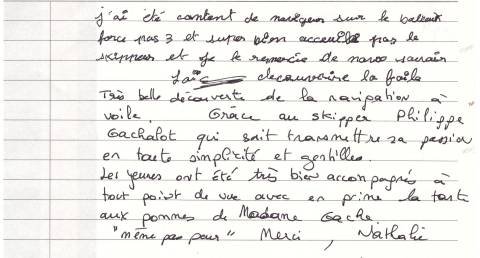 j'ai été content de naviguer sur le bateau
force pas 3 et super bien accueilli pas le
skippeur et je le remercie de nous
decouvrire la
Très belle découverte de la navigation à
voile. Grâce au skipper Philippe
Gachalot qui sait transmettre sa passion
en toute simplicité et gentilles.
Les jeunes ont été très bien accompagnés à
tout point de vue avec en prime la tarte
aux pommes de Madame Gache.
"même pas peur" Merci, Nathalie